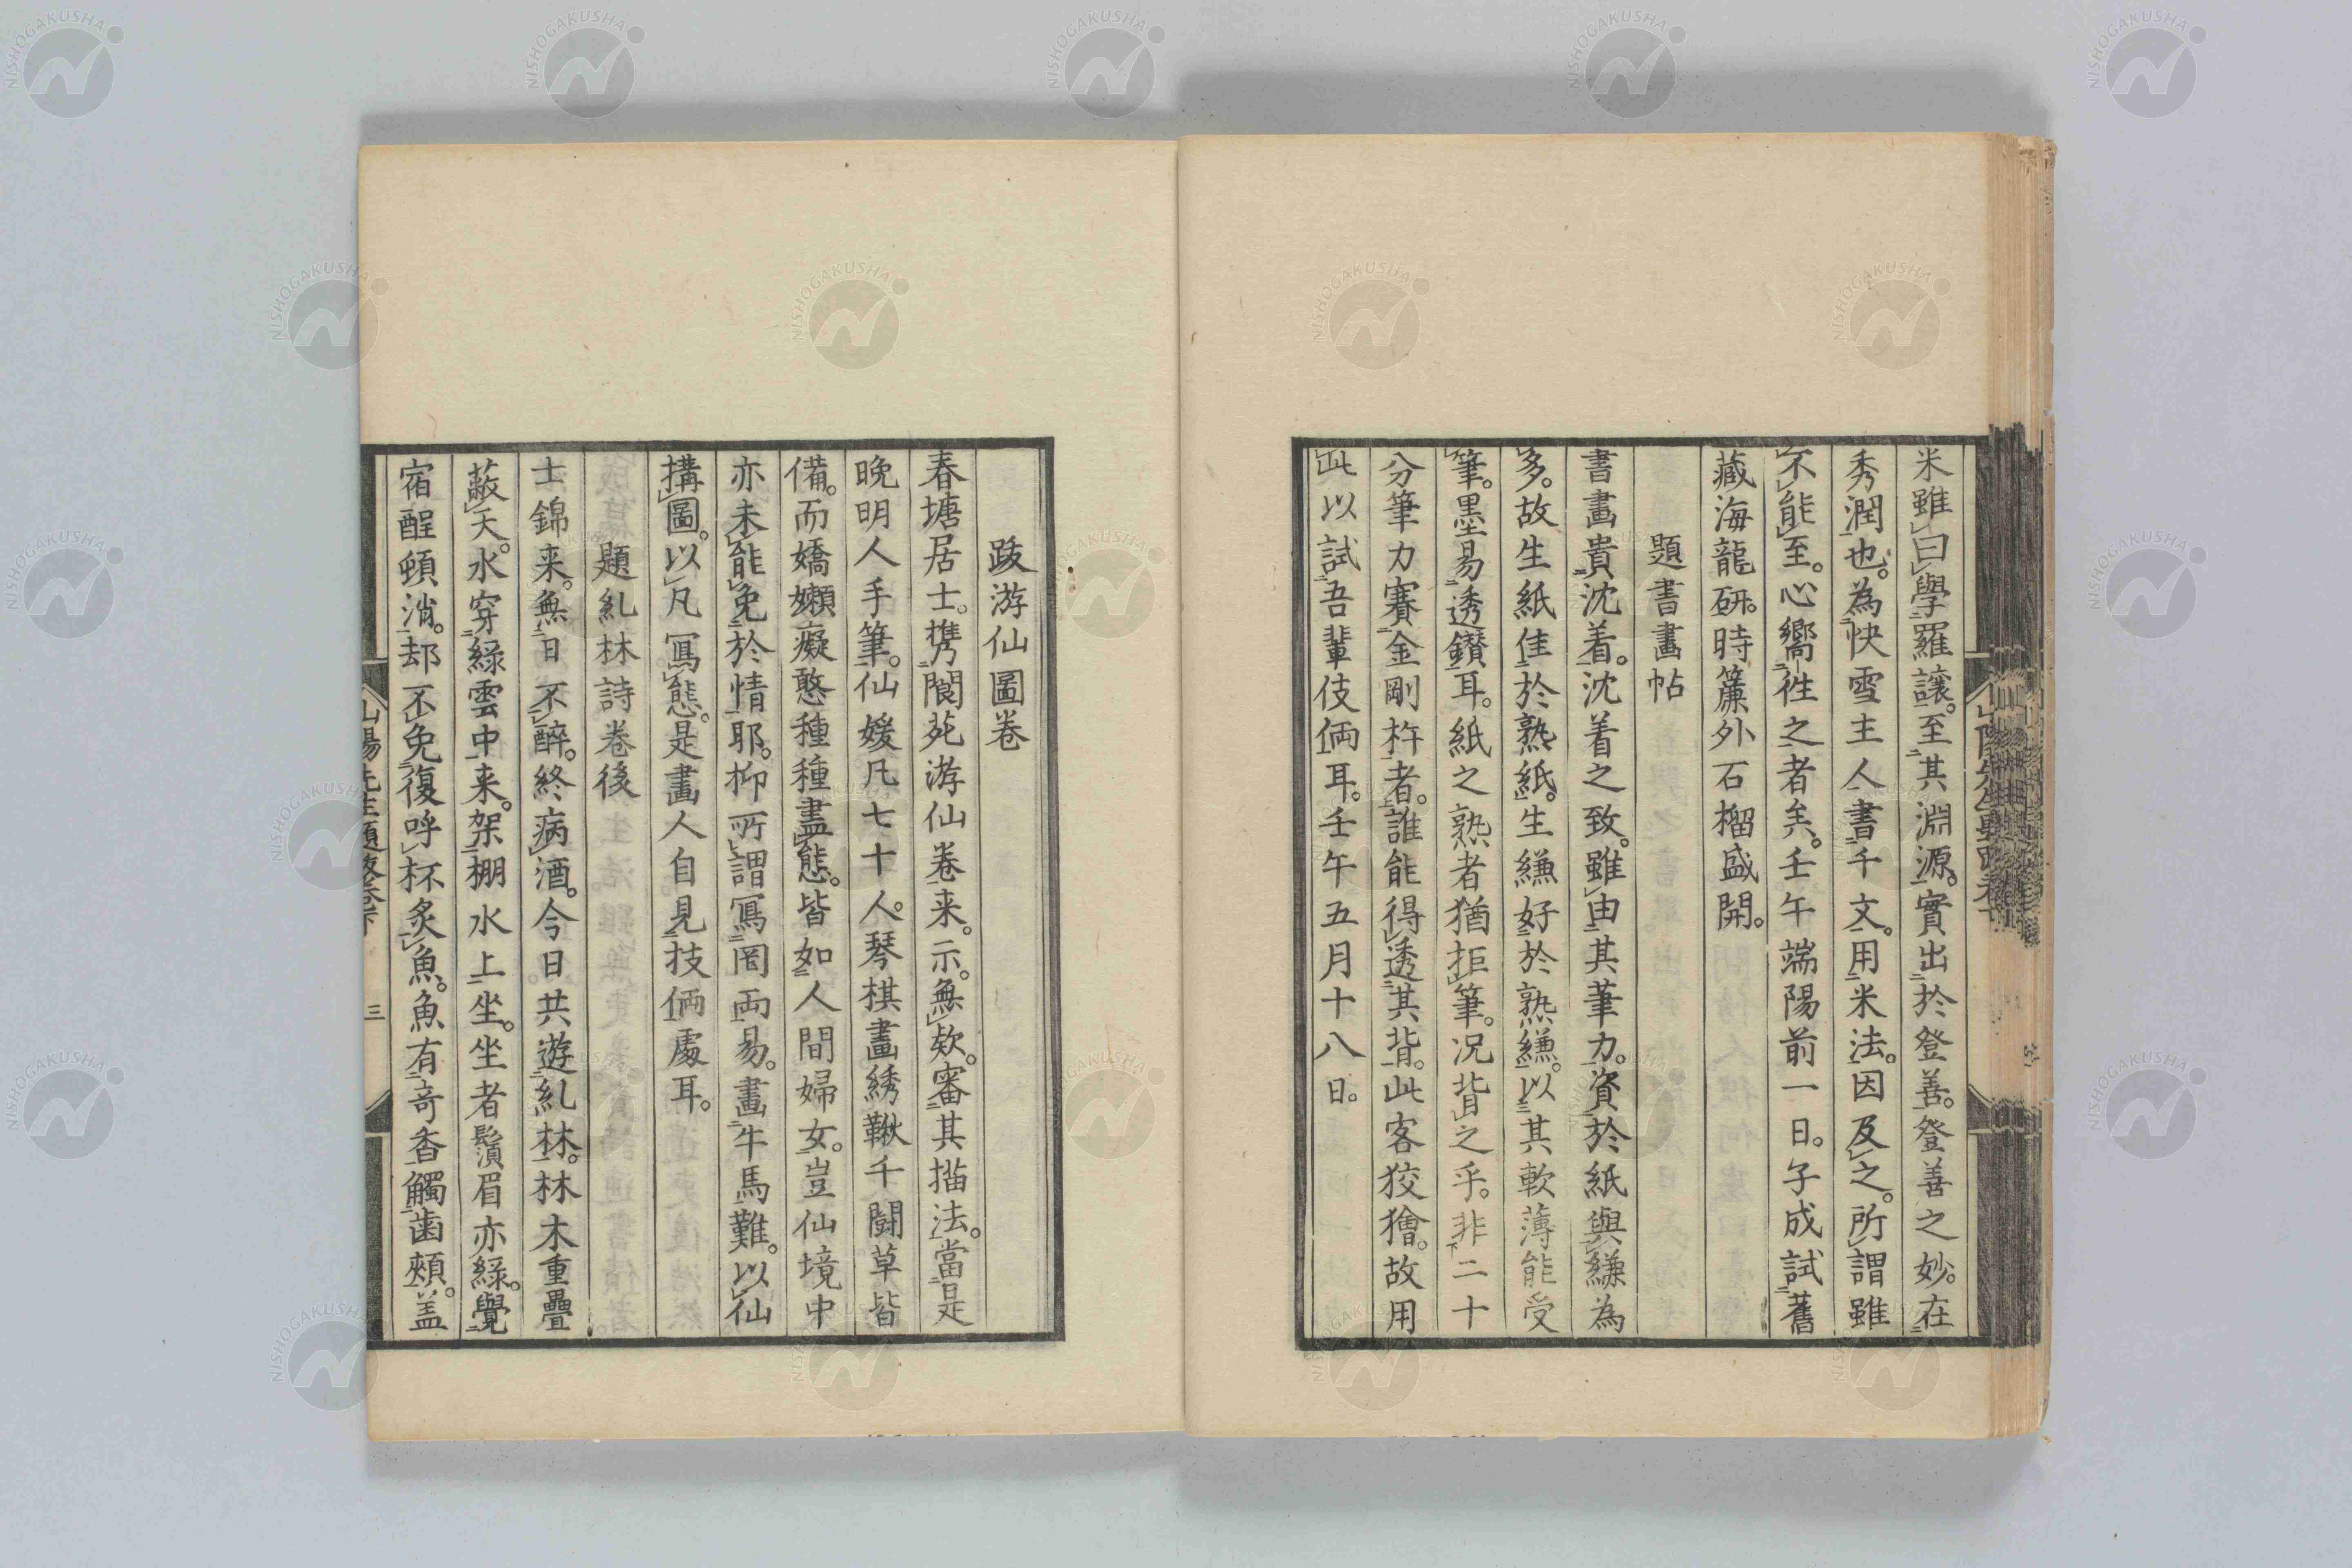 米雖曰學羅讓。至其淵源。實出於登善。登善之妙。在
秀潤也。為快雪主人書千文。用米法。因及之。所謂雖
不能至。心嚮往之者矣。壬午端陽前一日。子成試舊
藏海龍硏。時簾外石榴盛開。
題書畫帖
書畫貴沈着。沈着之致。雖由其筆力。資於紙與縑為
多。故生紙佳於熟紙。生縑好於熟縑。以其軟薄能受
筆。墨易透鑚耳。紙之熟者猶拒筆。况背之乎。非二十
分筆力賽金剛杵者。誰能得透其背。此客狡獪。故用
此以試吾輩伎倆耳。壬午五月十八日。
跋游仙圖卷
春塘居士。携閬苑游仙卷来。示。無欵。審其描法。當是
晚明人手筆。仙媛凡七十人。琴棋畫綉鞦千鬪草皆
備。而嬌嬾癡憨種種盡態。皆如人間婦女。豈仙境中
亦未能免於情耶。抑所謂寫罔兩易。畫牛馬難。以仙
搆圖。以凡寫態。是畫人自見技倆處耳。
題糺林詩卷後
士錦来。無日不醉。終病酒。今日共遊糺林。林木重疊
蔽天。水穿綠雲中来。架棚水上坐。坐者鬚眉亦綠。覺
宿酲頓消。却不免復呼杯炙魚。魚有奇香觸歯頰。盖
山陽先生題跋卷下
三
NISHOGAKUSHA